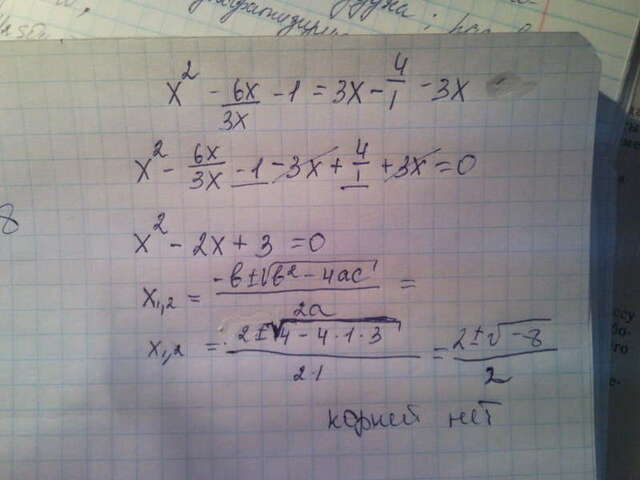 x² - 6x/3x - 1 = 3x - 4/1 - 3x
x² - 6x/3x - 1 - 3x + 4/1 + 3x = 0
8
x² - 2x + 3 = 0
x₁,₂ = (-в ± √(в² - 4ac))/2a =
x₁,₂ = (2 ± √(4 - 4·1·3))/2·1 = (2 ± √-8)/2
корней нет